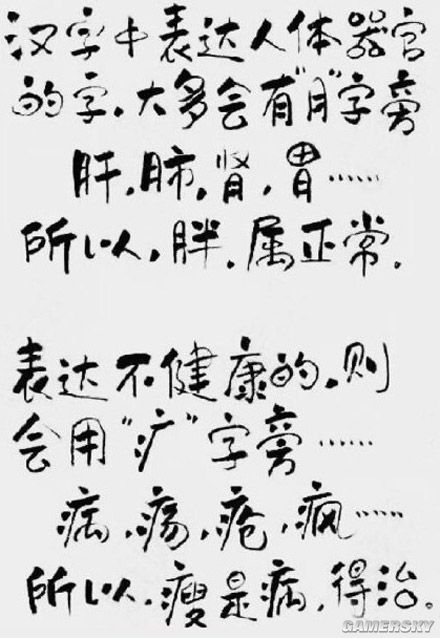 汉字中表达人体器官
的字,大多会有"月"字旁
肝,肺,肾,胃……
所以,胖,属正常.
表达不健康的,则
会用"疒"字旁……
病,疡,疮,疯……
所以,瘦是病,得治。
GAMERSKY